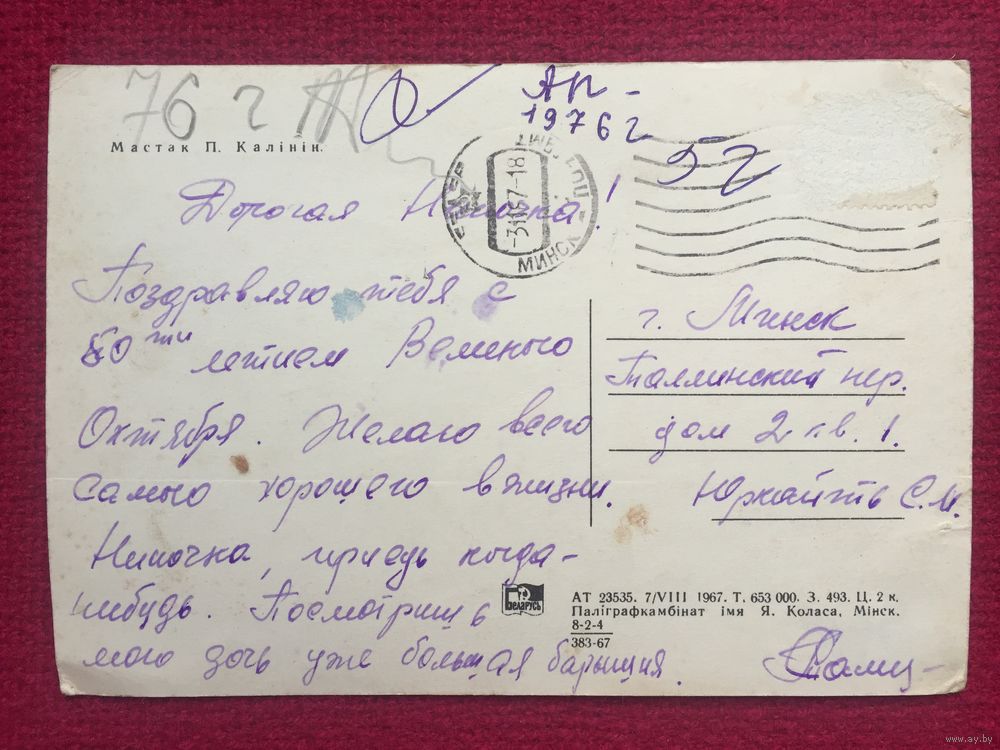 76 г
Ап -
1976 г
Мастак П. Калінін.
-3 11 67-18
МИНСК
Дорогая Ниночка!
Поздравляю тебя с
50 тии летием Великого
Октября. Желаю всего
самого хорошего в жизни.
Ниночка, приедь когда-
нибудь. Посмотришь
мою дочь уже большая барышня.
г. Минск
Таллинский пер.
дом 2 кв. 1.
С. М.
БЕЛАРУСЬ
АТ 23535. 7/VIII 1967. Т. 653 000. З. 493. Ц. 2 к.
Паліграфкамбінат імя Я. Коласа, Мінск.
8-2-4
383-67
www.ay.by